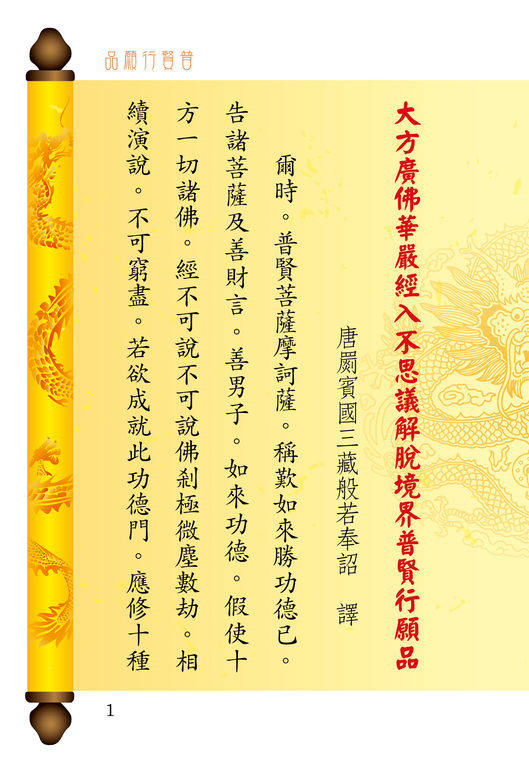 普賢行願品
大方廣佛華嚴經入不思議解脫境界普賢行願品
唐罽賓國三藏般若奉詔　譯
爾時。普賢菩薩摩訶薩。稱歎如來勝功德已。
告諸菩薩及善財言。善男子。如來功德。假使十
方一切諸佛。經不可說不可說佛剎極微塵數劫。相
續演說。不可窮盡。若欲成就此功德門。應修十種
1